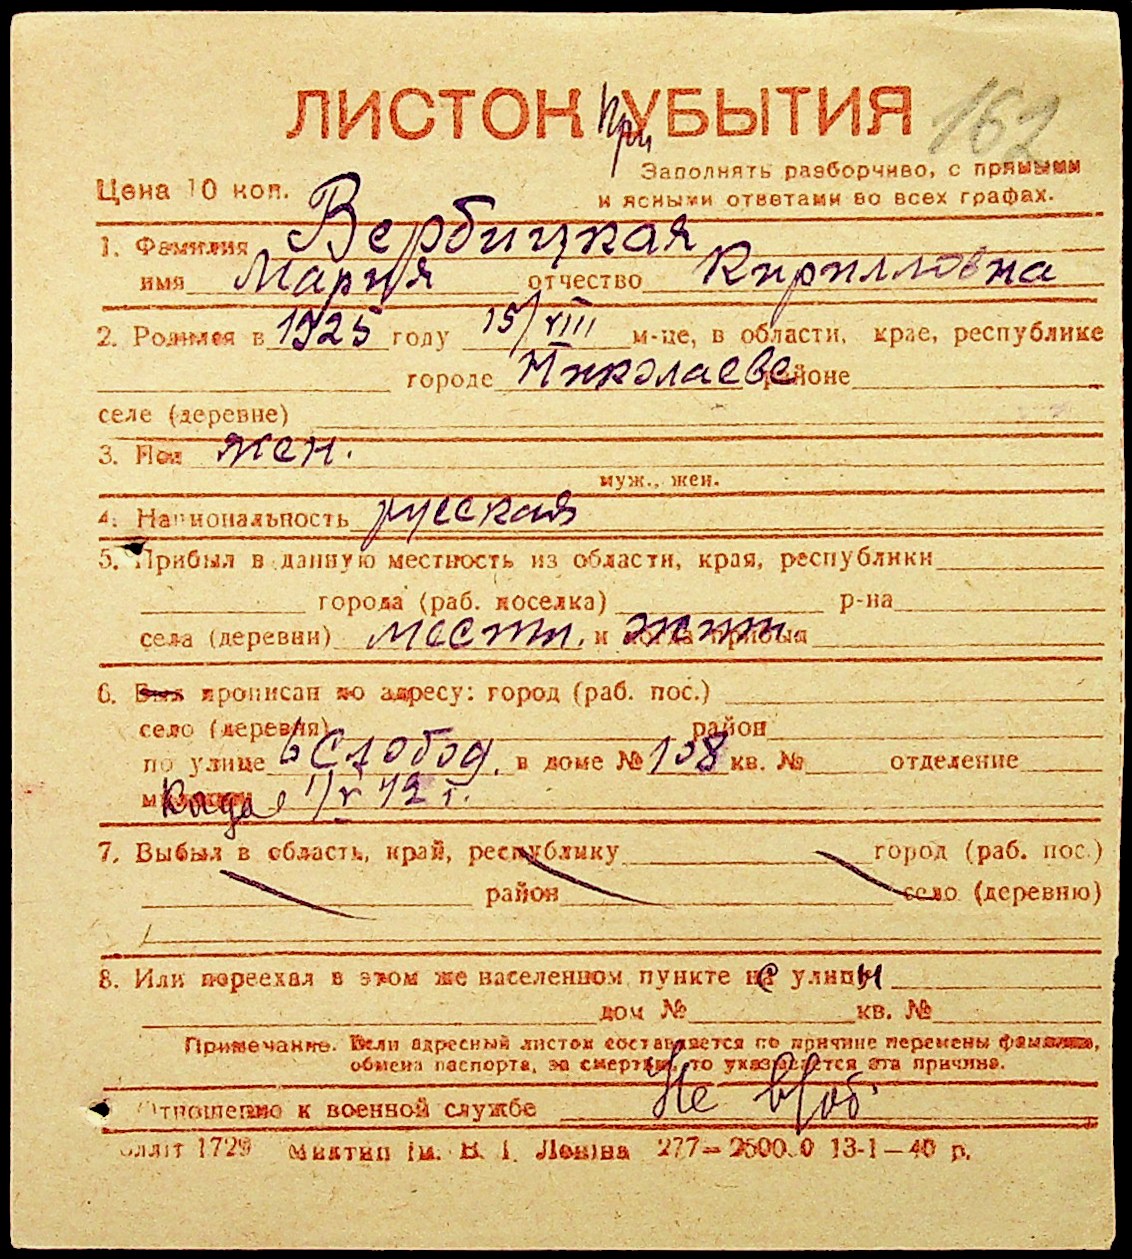 ЛИСТОК при УБЫТИЯ 162
Заполнять разборчиво, с прямыми
Цена 10 коп.
и ясными ответами во всех графах.
1. Фамилия Вербицкая
имя Мария отчество Кирилловна
2. Родился в 1925 году 15/VIII м-це, в области, крае, республике
городе Николаеве районе
селе (деревне)
3. Пол жен.
муж., жен.
4. Национальность русская
5. Прибыл в данную местность из области, края, республики
города (раб. поселка) р-на
села (деревни) местн. и жит. когда прибыл
6. Был прописан по адресу: город (раб. пос.)
село (деревня) район
по улице 6 Слобод. в доме № 108 кв. № отделение
милиции Когда 1/V 42 г.
7. Выбыл в область, край, республику город (раб. пос.)
район село (деревню)
8. Или переехал в этом же населенном пункте на с улицы
дом № кв. №
Примечание. Если адресный листок составляется по причине перемены фамилии,
обмена паспорта, за смертью, то указывается эта причина.
Отношение к военной службе Не в/об.
1729 Миктип ім. В. І. Леніна 277— 2500.0 13-1—40 р.